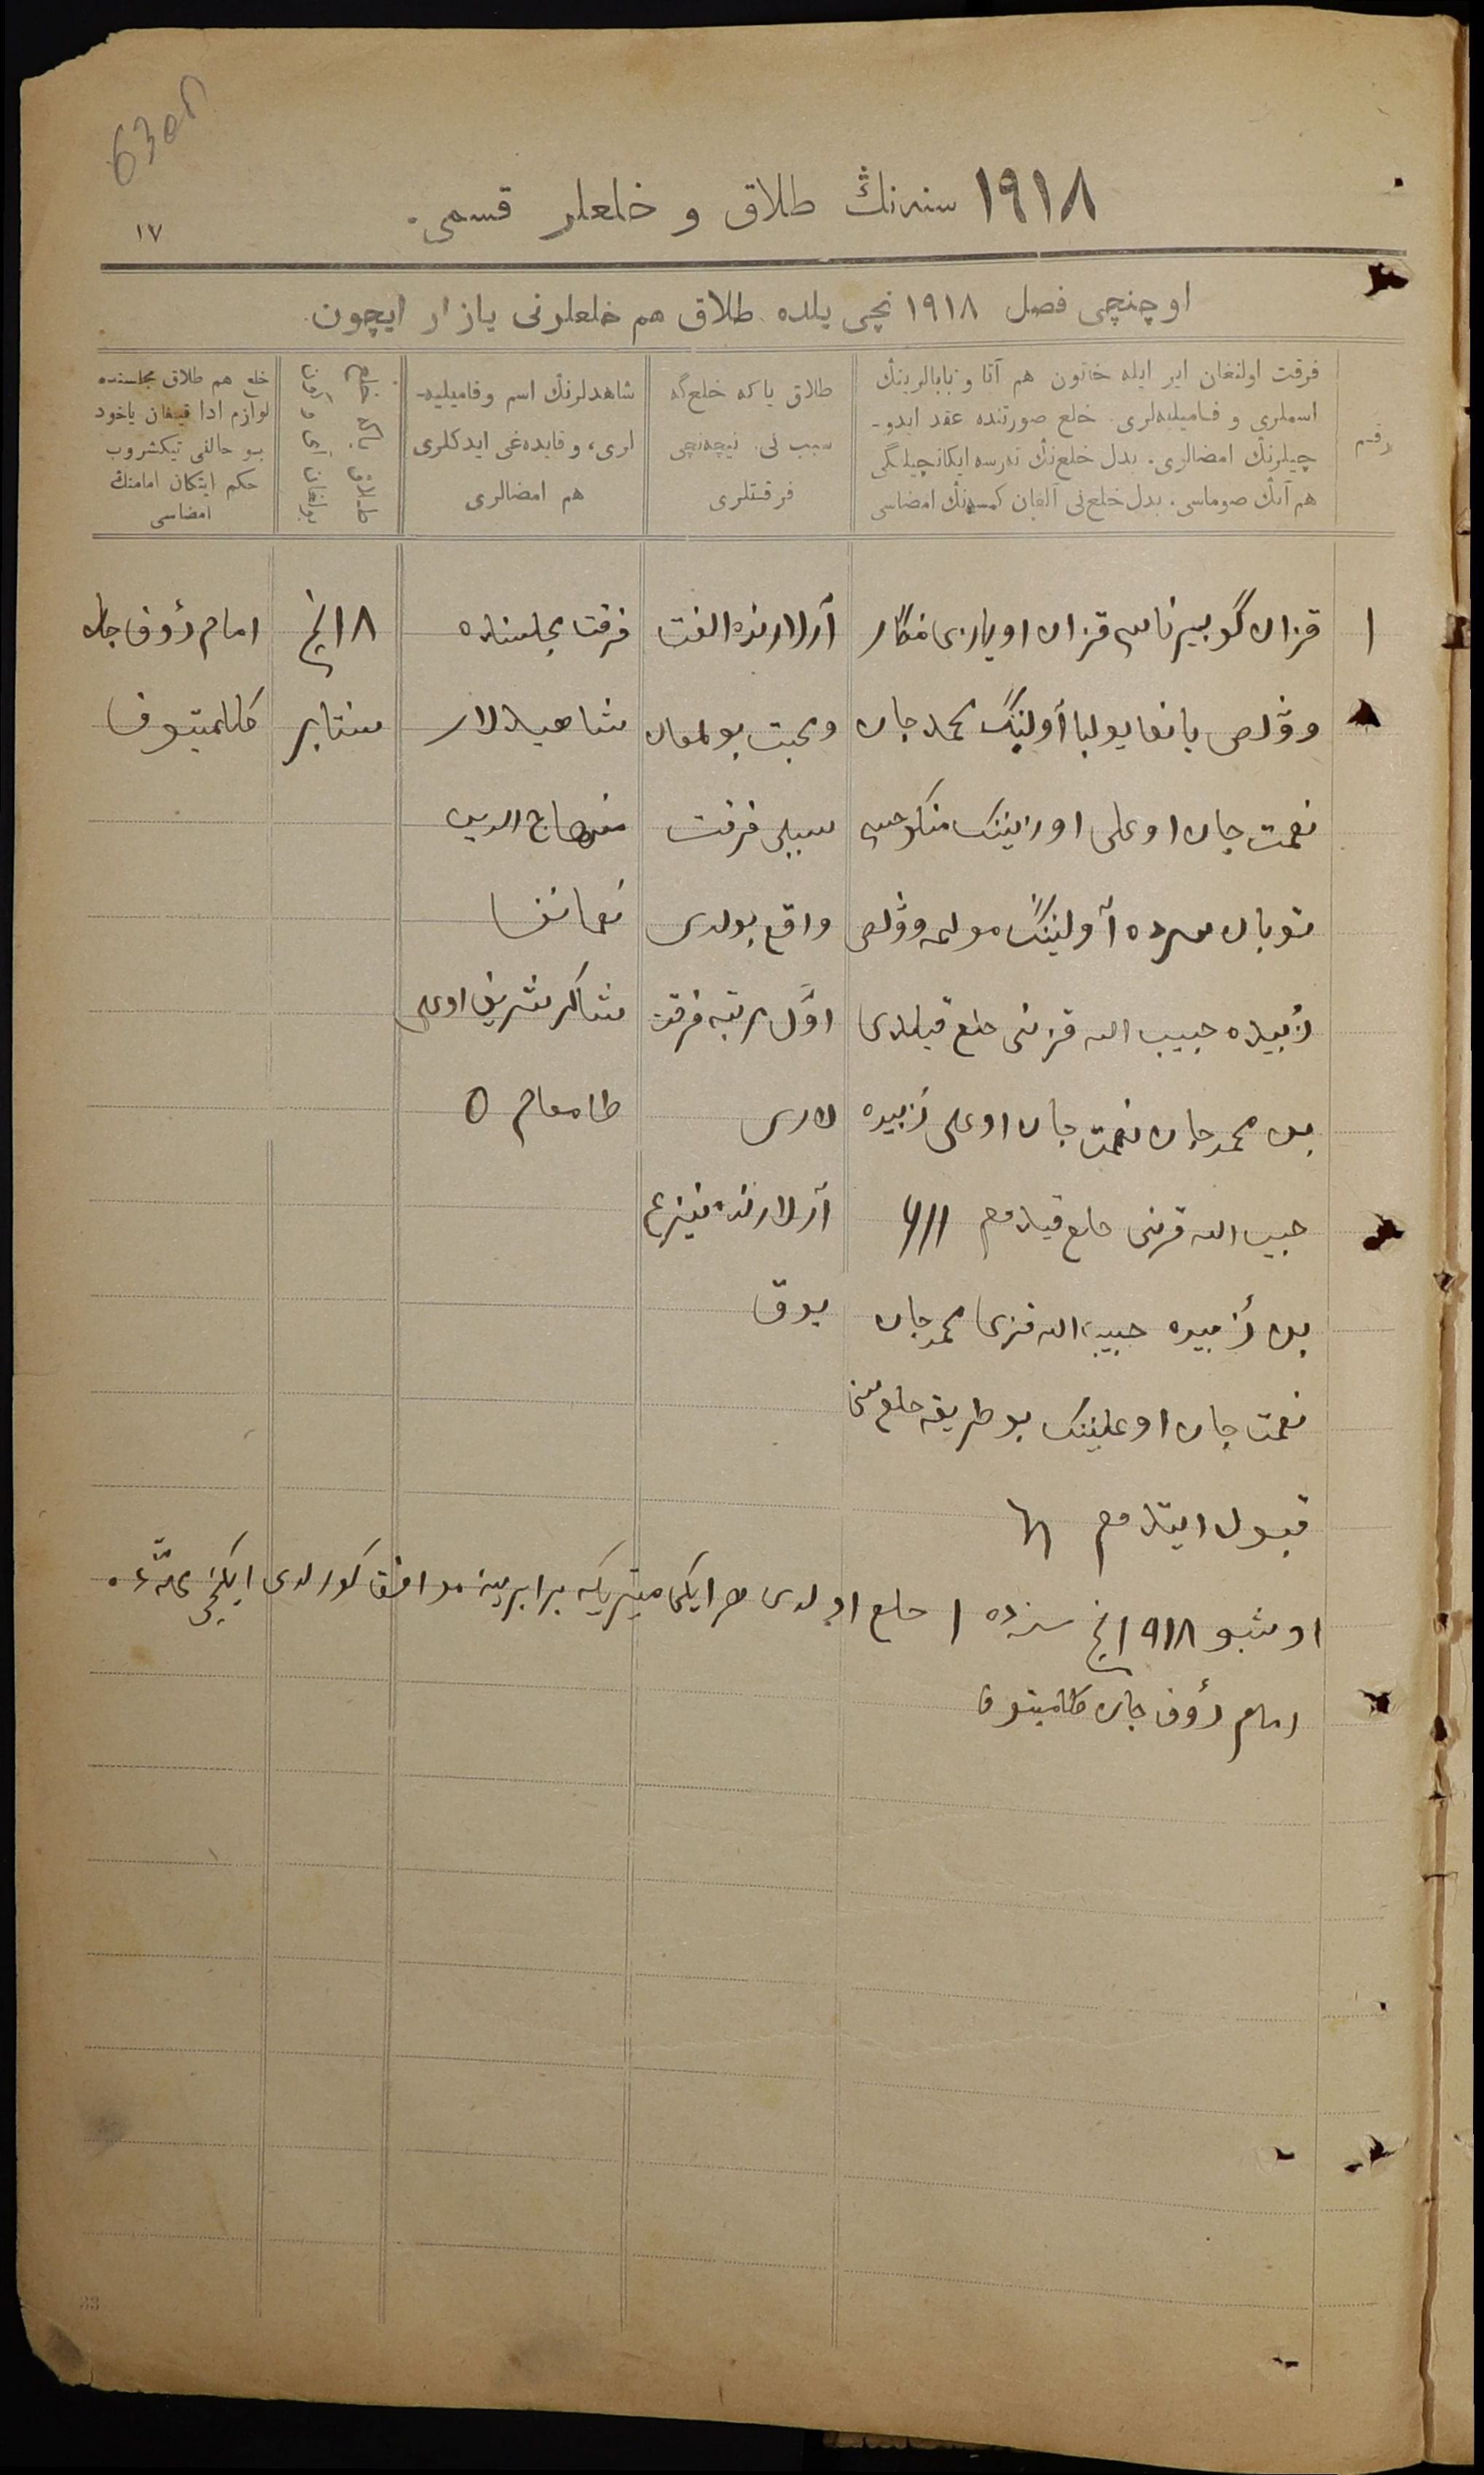 63об
١٩١٨ سنه‌نڭ طلاق و خلعلر قسمی.
١٧
اوچنچی فصل ١٩١٨ نچی یلده طلاق هم خلعلرنی یازار ایچون.
رقم
فرقت اولنغان ایر ایله خاتون هم آتا و بابالرینڭ
اسملری و فامیلیه‌لری. خلع صورتنده عقد ایدو-
چیلرنڭ امضالری. بدل خلع‌نڭ نه‌رسه ایکانچیلگی
هم آنڭ صوماسی. بدل خلع‌نی آلغان کمسه‌نڭ امضاسی
طلاق یا که خلع‌گه
سبب نی. نیچه‌نچی
فرقتلری
شاهدلرنڭ اسم و فامیلیه-
لری، و قایده‌غی ایدکلری
هم امضالری
طلاق یا که خلع
بولغان آی و کون
خلع هم طلاق مجلسنده
لوازم ادا قیلغان یاخود
بو حالنی تیکشروب
حکم ایتکان امامنڭ
امضاسی
١
قزان گوبیرناسی قزان اویازی
وۋلص آولینڭ محمد جان
نعمت جان اوغلی اوزینینڭ منکوحه‌سی
آولینڭ وۋلص
زبیده حبیب الله قزینی خلع قیلدی
من محمد جان نعمت جان اوغلی زبیده
حبیب الله قزینی خلع قیلدم
من زبیده حبیب الله قزی محمد جان
نعمت جان اوغلینینڭ بو طریقه خلع‌سنی
قبول ایتدم
آرالارنده الفت
و محبت بولمغان
سببلی فرقت
واقع بولدی
اوّل مرتبه فرقت
لاری
آرالارنده نیزاع
یوق
فرقت مجلسنده
شاهیدلار
منهاج الدین
شاکر شریف اوغلی
طامغام
١٨ نچی
سنتابر
امام رؤف جان
کللمیتوف
اوشبو ١٩١٨ نچی سنه‌ده ١ خلع اولدی هر ایکی میتریکه برابرینه موافق کورلدی ایکنچی محلّه.
امام رؤف جان کللمیتوف
33